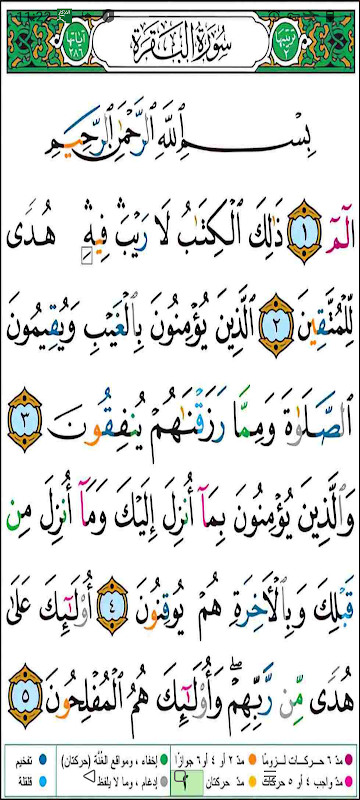 ترتيبها ٢
سُورَةُ البَقَرَةِ
آياتها ٢٨٦
بِسْمِ ٱللَّهِ ٱلرَّحْمَٰنِ ٱلرَّحِيمِ
الٓمٓ ١ ذَٰلِكَ ٱلْكِتَٰبُ لَا رَيْبَۛ فِيهِۛ هُدًى
لِّلْمُتَّقِينَ ٢ ٱلَّذِينَ يُؤْمِنُونَ بِٱلْغَيْبِ وَيُقِيمُونَ
ٱلصَّلَوٰةَ وَمِمَّا رَزَقْنَٰهُمْ يُنفِقُونَ ٣
وَٱلَّذِينَ يُؤْمِنُونَ بِمَآ أُنزِلَ إِلَيْكَ وَمَآ أُنزِلَ مِن
قَبْلِكَ وَبِٱلْأَخِرَةِ هُمْ يُوقِنُونَ ٤ أُو۟لَٰٓئِكَ عَلَىٰ
هُدًى مِّن رَّبِّهِمْۖ وَأُو۟لَٰٓئِكَ هُمُ ٱلْمُفْلِحُونَ ٥
مدّ ٦ حركات لزوماً مدّ ٢ أو ٤ أو ٦ جوازاً إخفاء، ومواقع الغُنَّة (حركتان) تفخيم
مدّ واجب ٤ أو ٥ حركات مدّ حركتان ٢ إدغام، وما لا يلفظ قلقلة